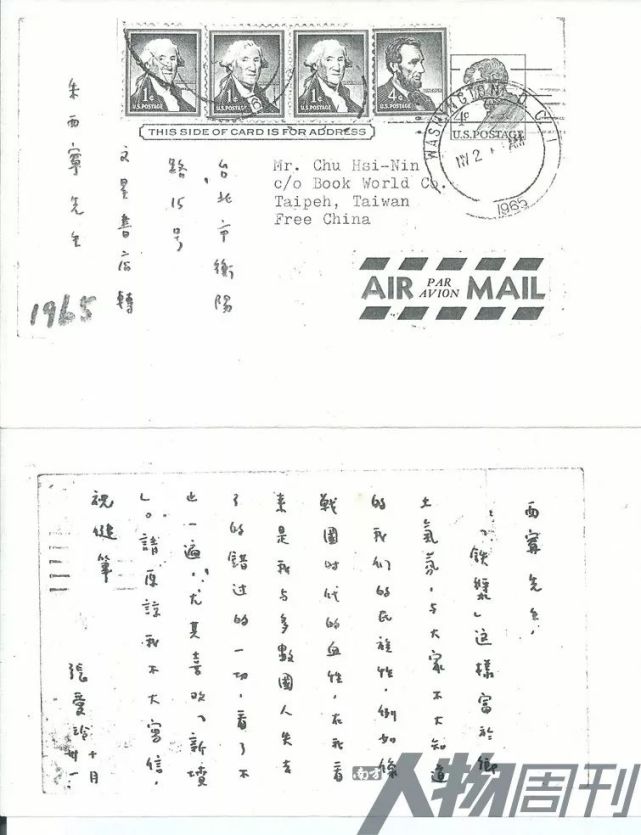 1¢
U.S. POSTAGE
1¢
U.S. POSTAGE
1¢
U.S. POSTAGE
4¢
U.S. POSTAGE
4¢
U.S. POSTAGE
WASHINGTON, D.C. 1
AM
1965
THIS SIDE OF CARD IS FOR ADDRESS
Mr. Chu Hsi-Nin
c/o Book World Co.
Taipeh, Taiwan
Free China
AIR PAR AVION MAIL
台北市衡陽
路15号
文星書店轉
朱西寧先生
1965
西寧先生,
「鉄漿」这樣富於鄉
土氣氛,与大家不大知道
的我们的民族性,例如像
戰國时代的血性,在我看
来是我与多數國人失去
了的錯过的一切,看了不
止一遍,尤其喜欢「新墳
」。請原諒我不大寫信,
祝健筆
張愛玲 十月
卅一
南方人物周刊